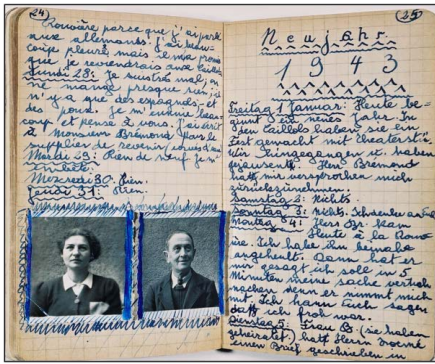 24
Rouvière parce que j'ai parlé
aux allemands. J'ai beau-
coup pleuré mais il m'a promis
que je reviendrais aux Caillols
Jeudi 28: Je suis très mal, on
ne mange presque rien, il
n'y a que des espagnols, et
des poux. Je m'ennuie beau-
coup et pense à vous. J'ai écrit
à Monsieur Brémond pour le
supplier de revenir
Mardi 29: Rien de neuf je m'
embête.
Mercredi 30: Rien.
Jeudi 31: Rien.
25
Neujahr
1943
Freitag 1 Januar: Heute be-
ginnt ein neues Jahr. In
den Caillols haben sie ein
Fest gemacht mit Theaterst.
Wir hingegangen et. haben
geweint. Herr Brémond
hatt mir versprochen mich
zurückzunehmen.
Samstag 2: Nichts
Sonntag 3: Nichts.
Montag 4: Herr Dr. Kam
Heute à la Rouv
ière. Ich habe ihn beinahe
angeheult. Dann hat er
mir gesagt ich soll in 5
Minuten meine sache
machen denn er nimmt mich
mit. Ich kann euch sagen
dass ich froh war.
Dienstag 5: Frau B (sie haben
geheiratet) hatt Herrn
einen Brief geschrieben in